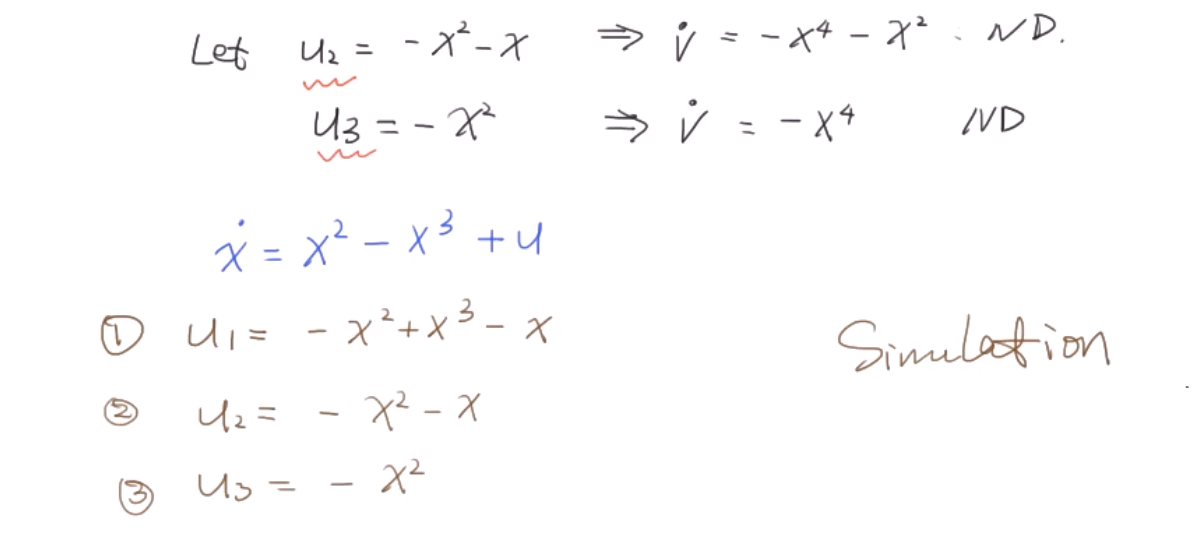 Let u₂ = -x²-x ⇒ V̇ = -x⁴ - x² . ND.
u₃ = - x² ⇒ V̇ = - x⁴ ND
ẋ = x² - x³ + u
① u₁ = - x²+x³- x
② u₂ = - x² - x Simulation
③ u₃ = - x²